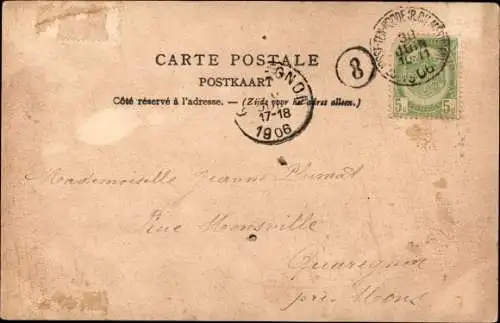 CARTE POSTALE
POSTKAART
Côté réservé à l'adresse. — (Zijde voor het adres allem.)
8
30
JUIN
10-11
1906
5 5
GNON
17-18
1906
Mademoiselle Jeanne Plumat
Rue Monsville
Quaregnon
près Mons